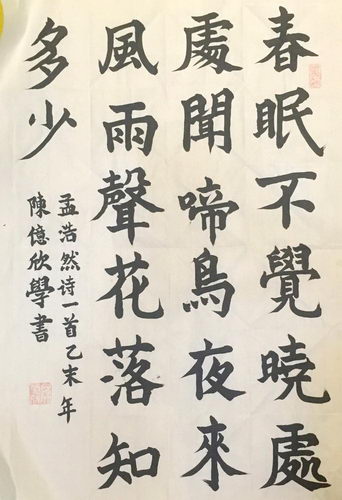 春眠不覺曉處
處聞啼鳥夜來
風雨聲花落知
多少
孟浩然诗一首乙末年
陳億欣學書